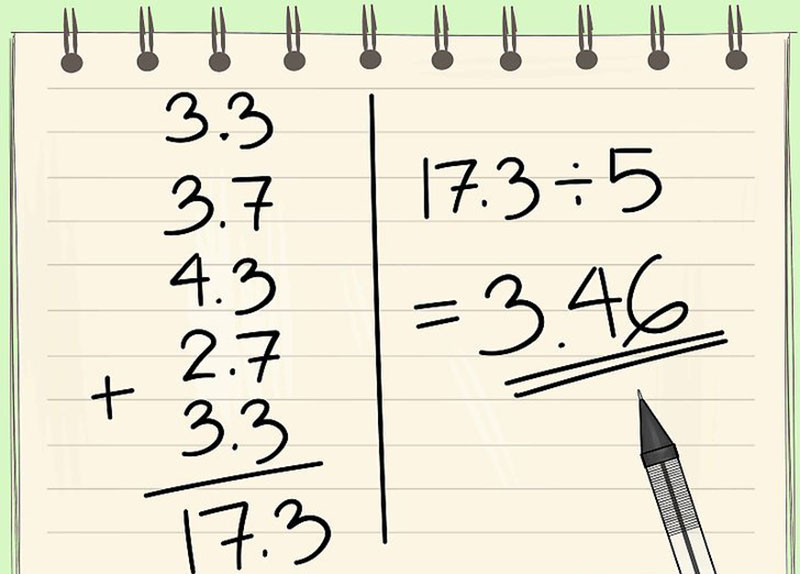 3.3
3.7
4.3
2.7
+ 3.3
17.3
17.3÷5
=3.46